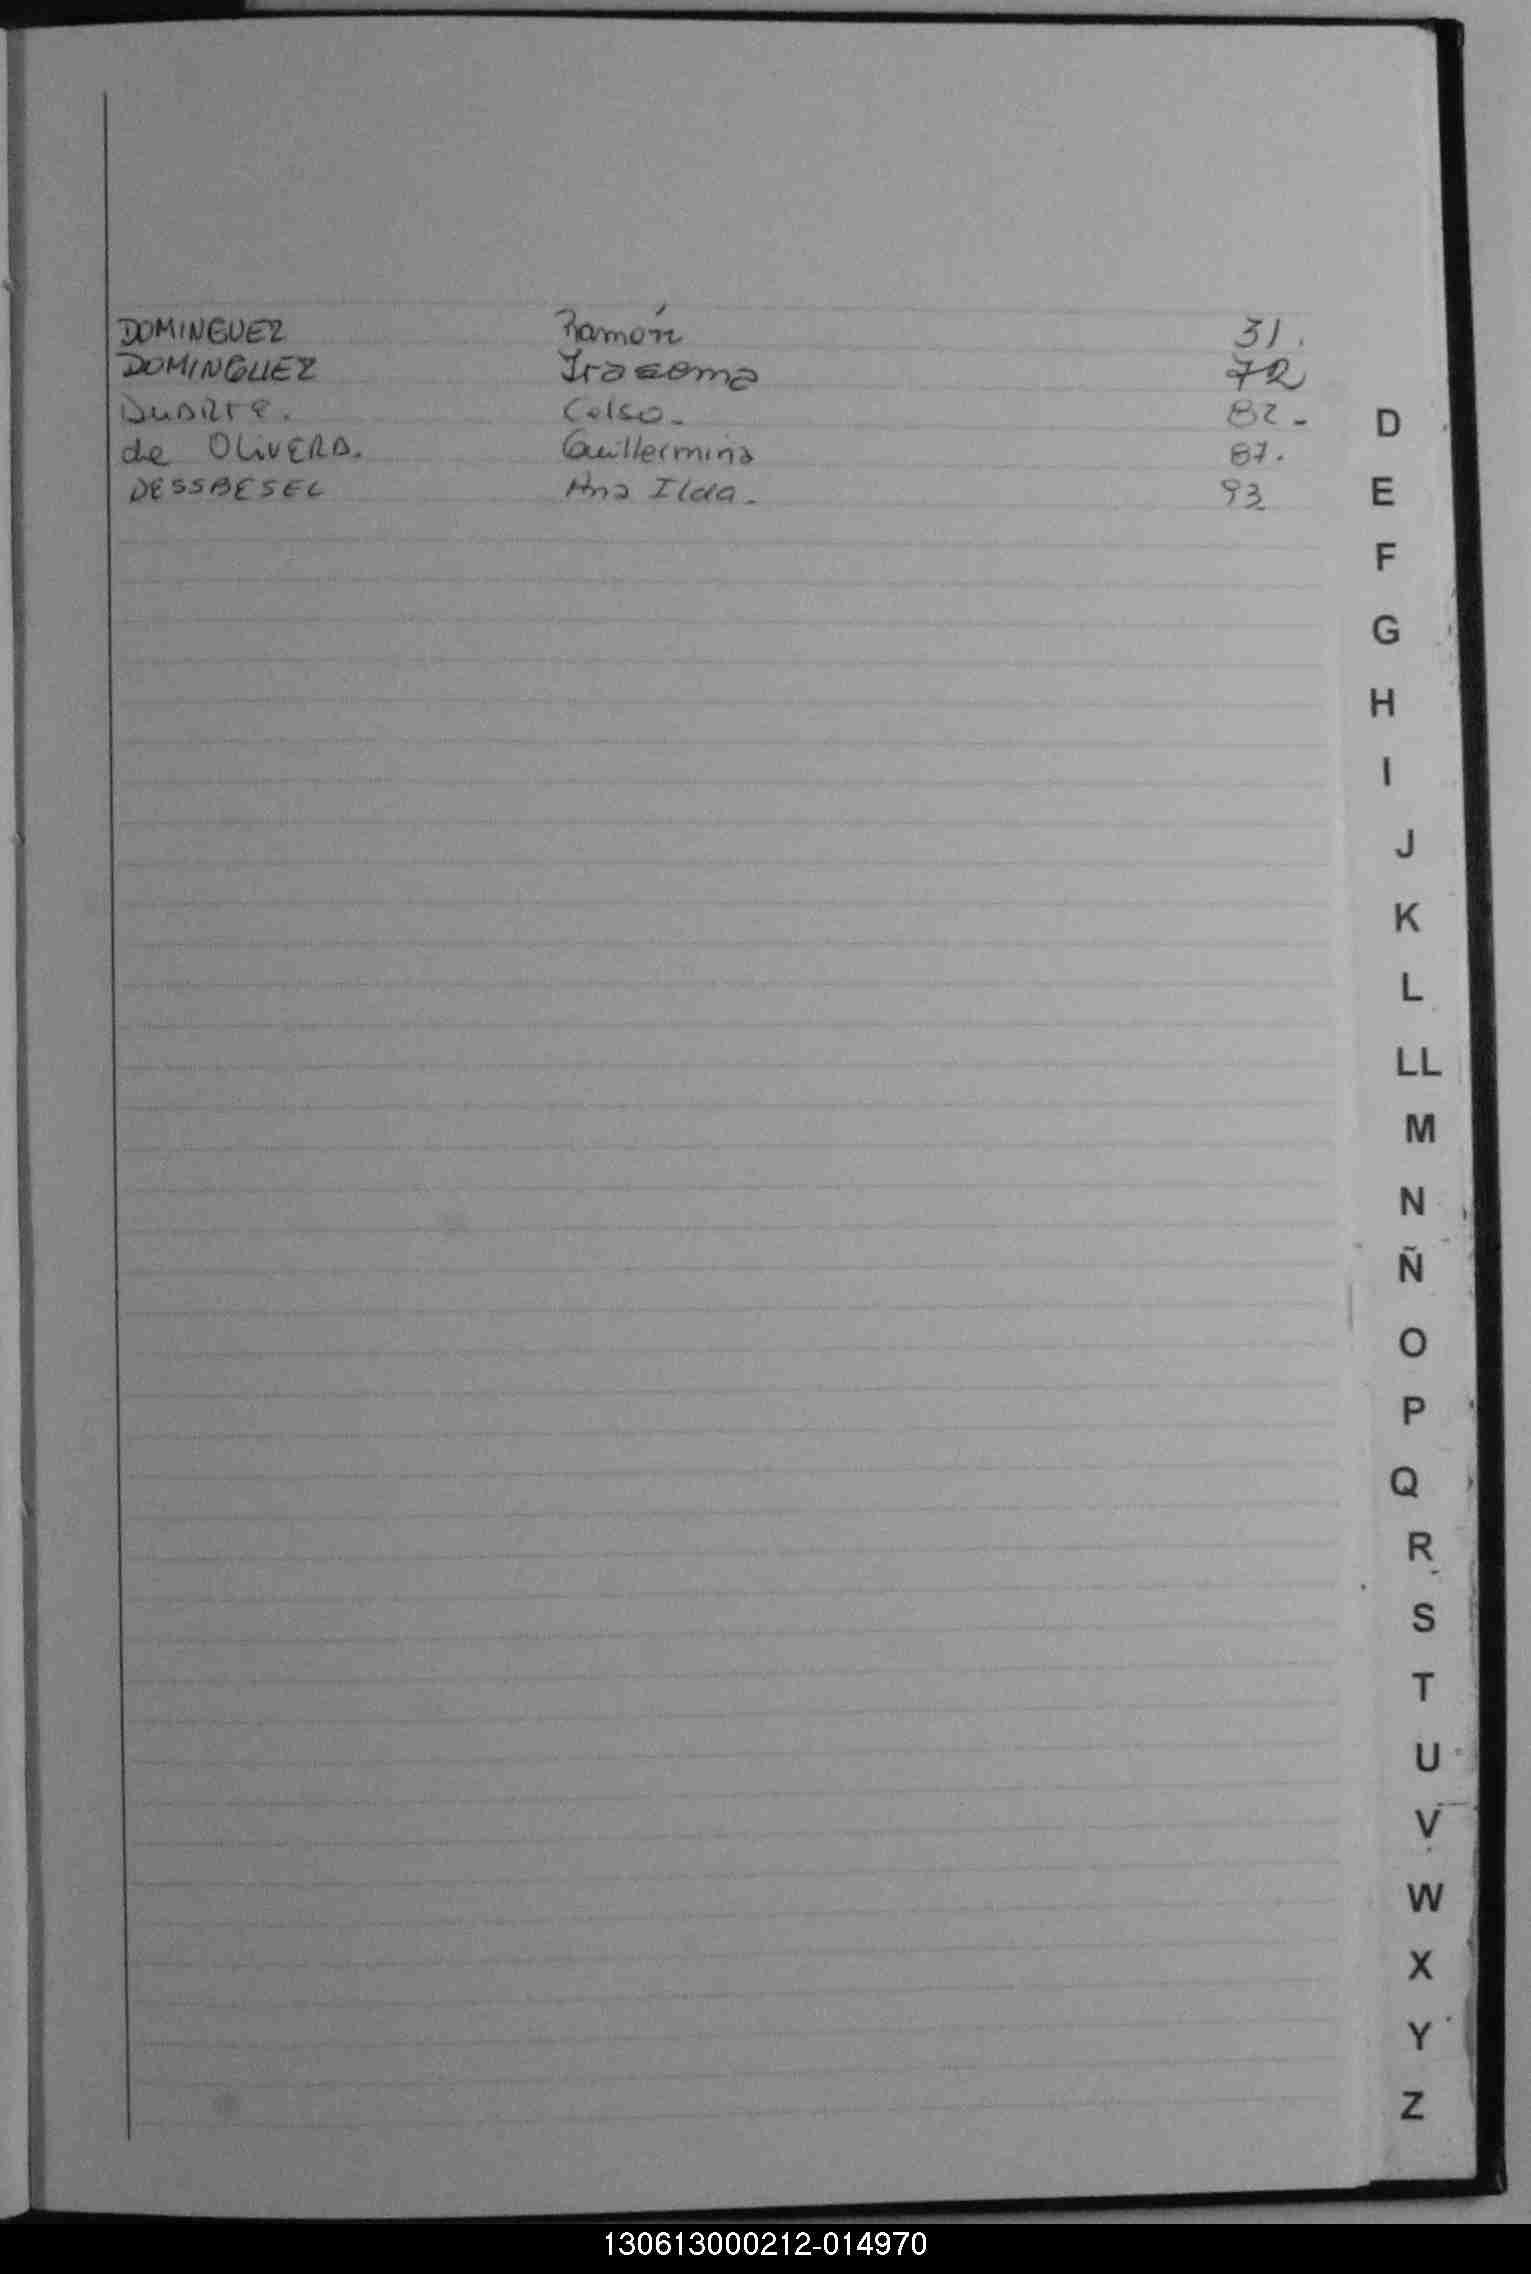 DOMINGUEZ Ramón 31.
DOMINGUEZ Iracema 72
Duarte. Celso. 82-
de OLIVERA. Guillermina 87.
DESSBESEL Ana Ilda. 93
D
E
F
G
H
I
J
K
L
LL
M
N
Ñ
O
P
Q
R
S
T
U
V
W
X
Y
Z
130613000212-014970